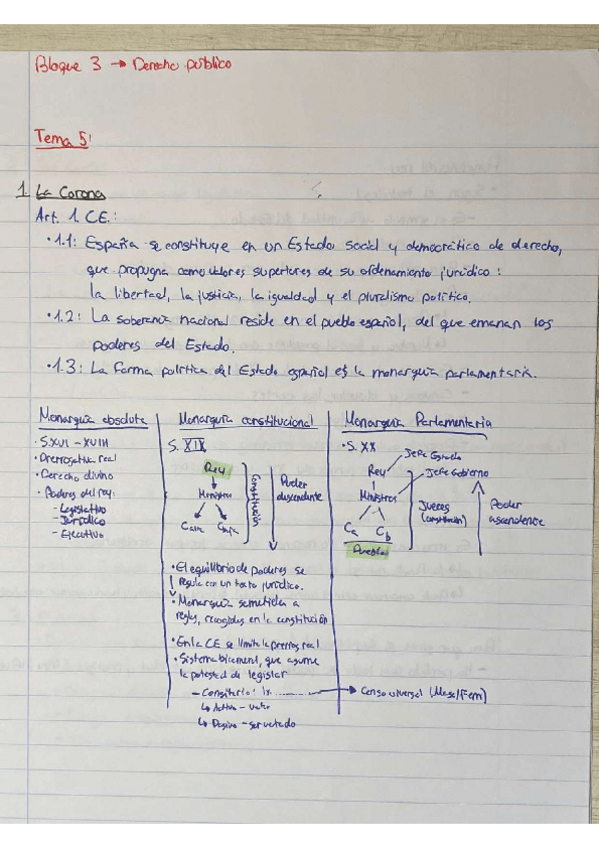 Bloque 3 → Derecho público
Tema 5:
1. La Corona
Art. 1. CE.:
• 1.1: España se constituye en un Estado social y democrático de derecho,
que propugna como valores superiores de su ordenamiento jurídico:
la libertad, la justicia, la igualdad y el pluralismo político.
• 1.2: La soberanía nacional reside en el pueblo español, del que emanan los
poderes del Estado.
• 1.3: La forma política del Estado español es la monarquía parlamentaria.
Monarquía absoluta
• S.XVI - XVIII
• Prerrogativa real
• Derecho divino
• Poderes del rey:
- Legislativo
- Jurídico
- Ejecutivo
Monarquía constitucional
S. XIX
Rey
Ministros
Constitución
Poder
descendente
• El equilibrio de poderes se
regula con un texto jurídico.
• Monarquía sometida a
reglas, recogidas en la constitución
• En la CE se limita la prerrog real
• Sistema bicameral, que asume
la potestad de legislar
↳ Activo - votar
↳ Pasivo - ser votado
Monarquía Parlamentaria
• S. XX
Rey
Jefe Estado
Ministros
Jefe Gobierno
Ca Cb
Pueblo
Jueces
(constitución)
Poder
ascendente
→ Censo universal (Masc/Fem)